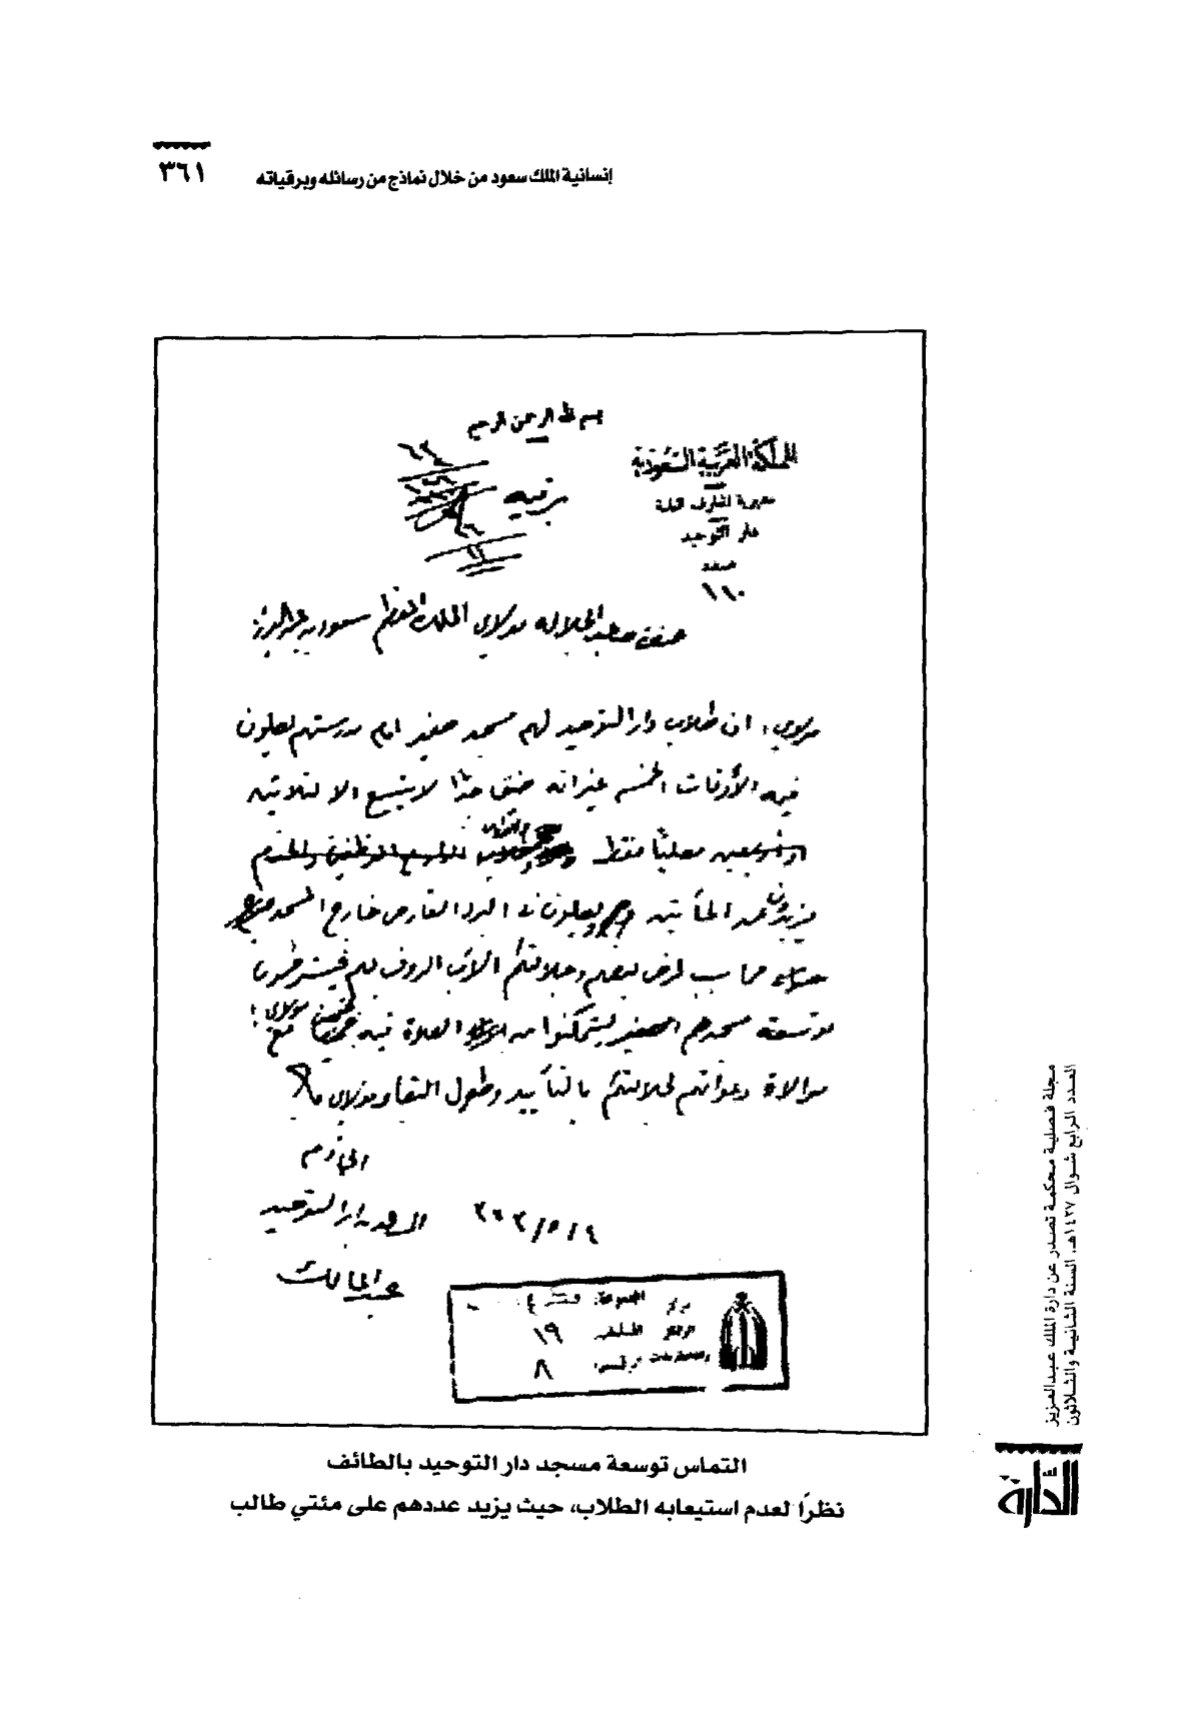 ٣٦١
إنسانية الملك سعود من خلال نماذج من رسائله وبرقياته
بسم الله الرحمن الرحيم
المملكة العربية السعودية
مديرية المعارف العامة
دار التوحيد
برقيه
١١٠
حضرة صاحب الجلاله مولاي الملك المعظم سعود بن عبدالعزيز
مولاي، ان طلاب دار التوحيد لهم مسجد صغير امام مدرستهم يصلون
فيه الأوقات الخمسه غير انه ضيق جدا لا يتسع الا لثلاثين
او اربعين مصلياً فقط
يزيدون عن المأتين ويصلون في البرد القارص خارج المسجد
مما سبب لمرض بعضهم وجلالتكم الأب الرؤف لهم فيسترحمون
توسعة مسجدهم الصغير ليتمكنوا من الصلاة فيه جميعاً مع
موالاة دعواتهم لجلالتكم بالتأييد وطول البقاء مولاي
الخادم
دار التوحيد
عبدالمالك
المجموعة
رقم الملف ١٩
٨
التماس توسعة مسجد دار التوحيد بالطائف
نظرًا لعدم استيعابه الطلاب، حيث يزيد عددهم على مئتي طالب
مجلة فصلية محكمة تصدر عن دارة الملك عبدالعزيز
العدد الرابع شوال ١٤٣٧هـ، السنة الثانية والثلاثون
الدارة